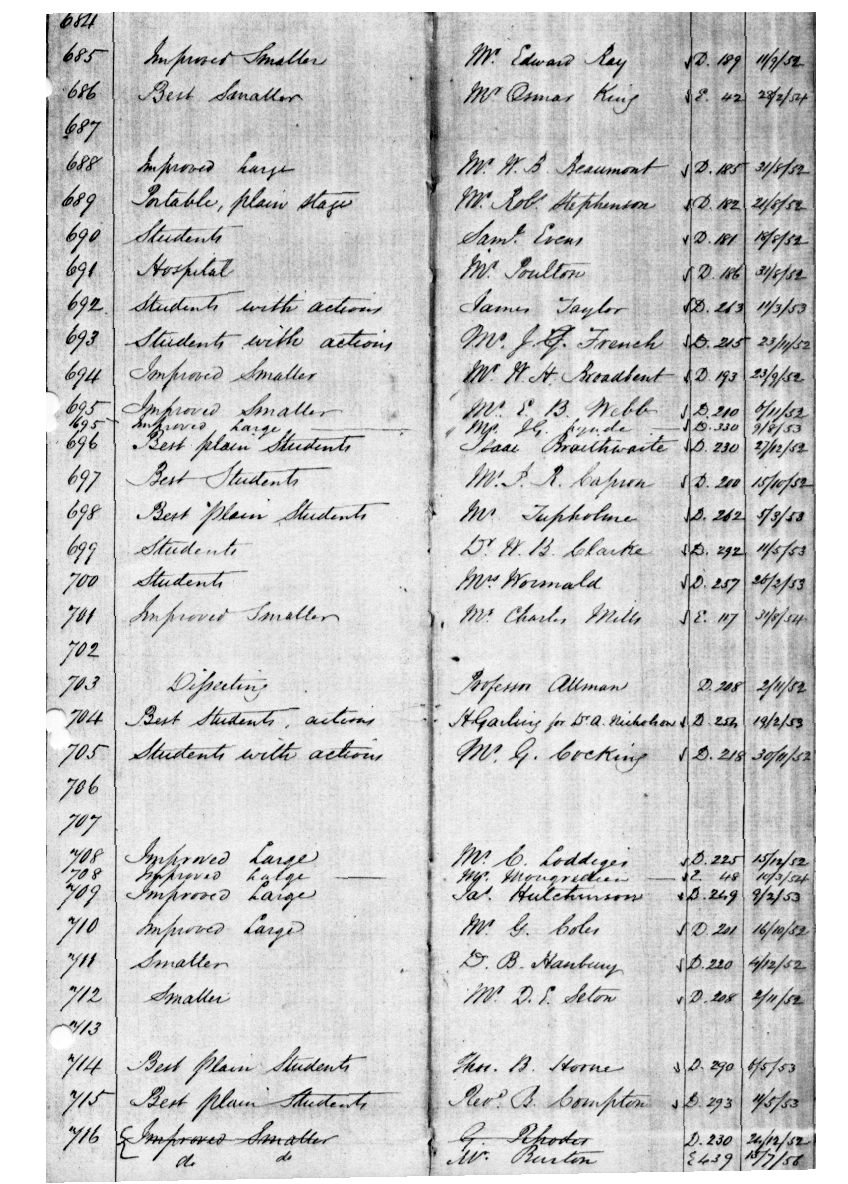 684
685 Improved Smaller Mr. Edward Ray √ D. 189 11/9/52
686 Best Smaller Mr Osmar King √ E. 42 28/2/54
687
688 Improved Large Mr. W. B. Beaumont √ D. 185 31/8/52
689 Portable, plain stage Mr. Robt. Stephenson √ D. 182 21/8/52
690 Students Saml. Evens √ D. 181 19/8/52
691 Hospital Mr. Poulton √ D. 186 31/8/52
692 Students with actions James Taylor √ D. 263 11/3/53
693 Students with actions Mr. J. G. French √ D. 215 23/11/52
694 Improved Smaller Mr. W. H. Broadbent √ D. 193 23/9/52
695 Improved Smaller Mr. E. B. Webb √ D. 210 5/11/52
695 Improved Large — Mr. J.G. Lynde — √ D. 330 9/8/53
696 Best plain Students Isaac Braithwaite √ D. 230 27/12/52
697 Best Students Mr. J. R. Capron √ D. 200 15/10/52
698 Best Plain Students Mr Tupholme √ D. 262 5/3/53
699 Students Dr W. B. Clarke √ D. 292 11/5/53
700 Students Mrs Wormald √ D. 257 26/2/53
701 Improved Smaller Mr Charles Mills √ E. 117 31/8/54
702
703 Dissecting Professor Allman D. 208 2/11/52
704 Best Students, actions H Garling for Dr. A. Nicholson √ D. 254 19/2/53
705 Students with actions Mr. G. Cocking √ D. 218 30/11/52
706
707
708 Improved Large Mr. C. Loddiges √ D. 225 15/12/52
708 Improved Large — Mr. Mongredien — √ E. 48 10/3/54
709 Improved Large Jas. Hutchinson √ D. 249 9/2/53
710 Improved Large Mr. G. Coles √ D. 201 16/10/52
711 Smaller D. B. Hanbury √ D. 220 4/12/52
712 Smaller Mr. D. E. Seton √ D. 208 2/11/52
713
714 Best plain Students Thos. B. Horne √ D. 290 6/5/53
715 Best plain Students Revd. B. Compton √ D. 293 11/5/53
716 { Improved Smaller G. Rhodes D. 230 24/12/52
do do Mr. Burton E 439 15/7/58